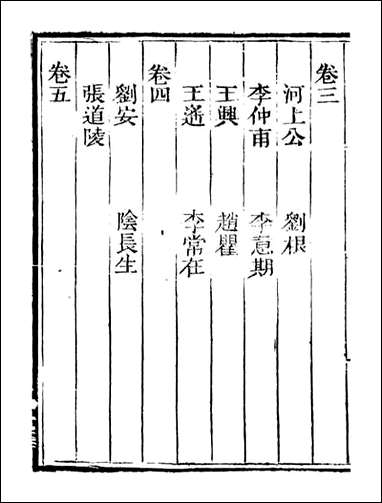 卷三
河上公　劉根
李仲甫　李意期
王興　趙瞿
王遙　李常在
卷四
劉安　陰長生
張道陵
卷五